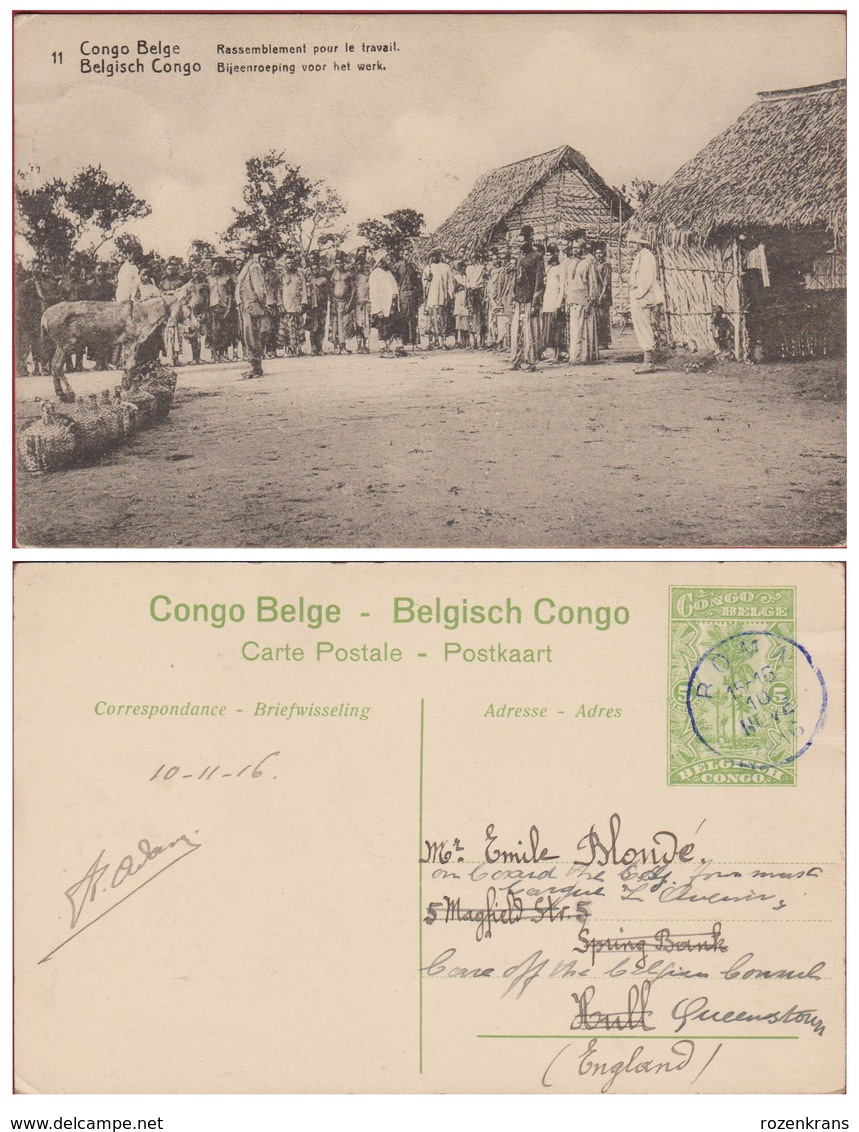 11 Congo Belge Rassemblement pour le travail.
Belgisch Congo Bijeenroeping voor het werk.
Congo Belge - Belgisch Congo
Carte Postale - Postkaart
CONGO
BELGE
5 5
BELGISCH
CONGO
BOMA
15-16
10
NOVE
Correspondance - Briefwisseling
Adresse - Adres
10-11-16.
Mr. Emile Blondé.
on board the Belg. four mast
barque L'Avenir,
5 Magfield Str. 5
Spring Bank
Care off the Belgian Consul
Hull Queenstown
(England)
www.delcampe.net
rozenkrans